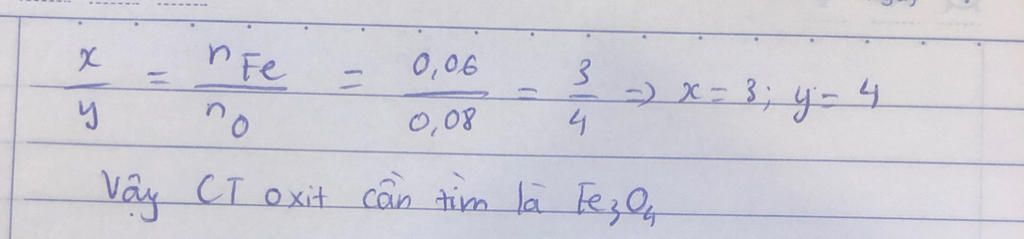 x/y = nFe/nO = 0,06/0,08 = 3/4 => x = 3; y = 4
Vậy CT oxit cần tìm là Fe₃O₄